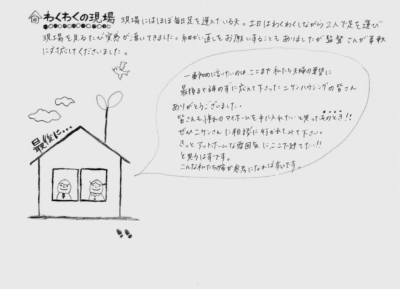 わくわくの現場
現場にはほぼ毎日足を運んでいる夫。土日はわくわくしながら2人で足を運び
現場を見るたび実感が湧いてきました。細かい直しをお願いすることもありましたが監督さんが柔軟
に対応してくださいました。
最後に...
一番初めに言いたいのは、ここまで私たち夫婦の要望に
最後まで神の手に応えて下さったニケンハウジングの皆さん
ありがとうございました。
皆さんも憧れのマイホームを手に入れたいと思ったそのとき!!
ぜひニケンさんに相談に行かれてみて下さい。
きっとアットホームな雰囲気にここで建てたい!!
と思うはずです。
こんな私たち 参考になれば幸いです。